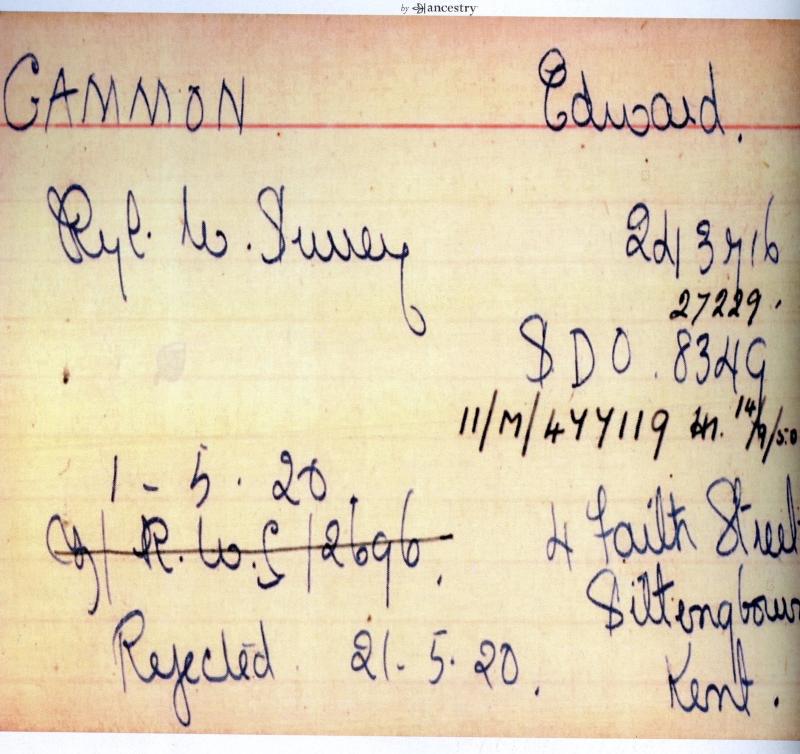 by ancestry
GAMMON Edward.
Ryl. W. Surrey 243716
27229.
SDO. 8349
11/M/477119 14/9/50
1-5.20.
R.W.S/2696.
4 Faith Street
Sittingbour
Rejected 21-5.20.
Kent.